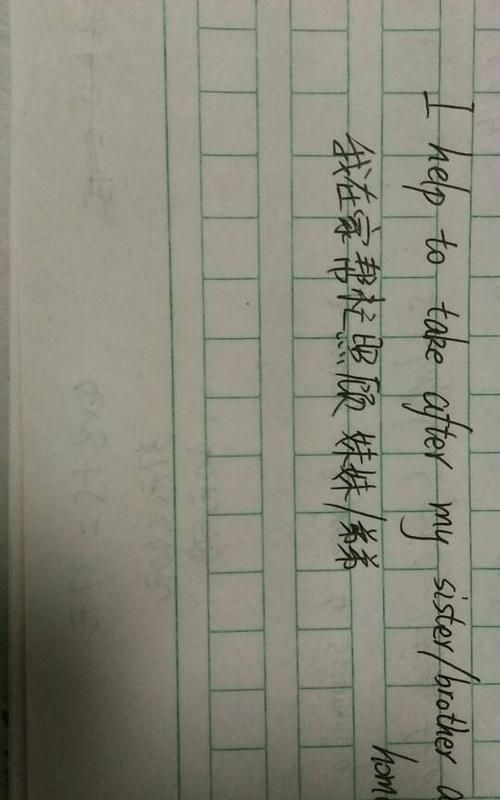 I help to take after my sister/brother a
hom
我在家帮忙照顾妹妹/弟弟